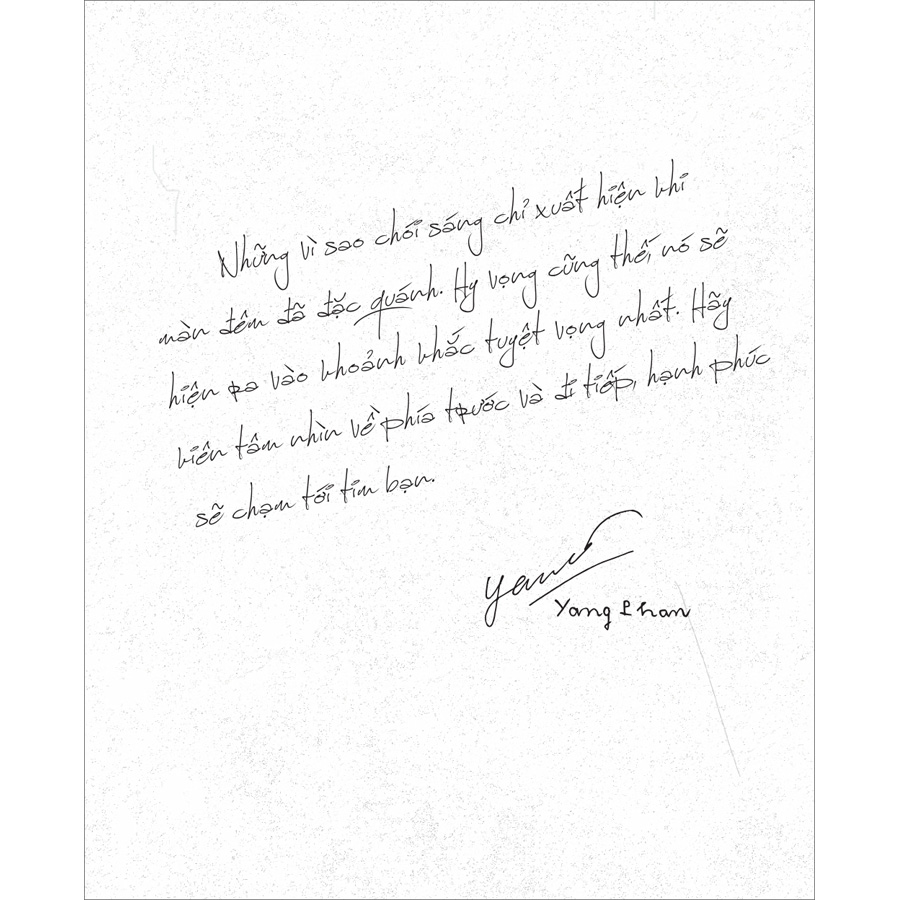 Những vì sao chói sáng chỉ xuất hiện khi
màn đêm đã đặc quánh. Hy vọng cũng thế, nó sẽ
hiện ra vào khoảnh khắc tuyệt vọng nhất. Hãy
kiên tâm nhìn về phía trước và đi tiếp, hạnh phúc
sẽ chạm tới tim bạn.
Yang Phan